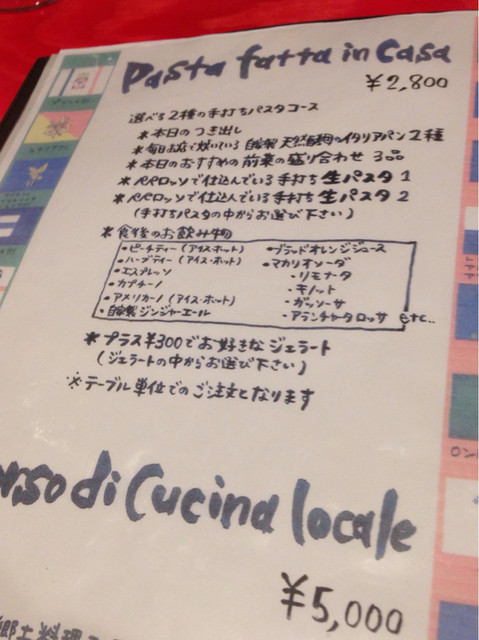 Pasta fatta in Casa
¥2,800
選べる2種の手打ちパスタコース
*本日のつき出し
*毎日お店で焼いている自家製天然酵母のイタリアパン2種
*本日のおすすめの前菜の盛り合わせ 3品
*パパロッソで仕込んでいる手打ち生パスタ1
*パパロッソで仕込んでいる手打ち生パスタ2
(手打ちパスタの中からお選び下さい)
*食後のお飲み物
・ピーチティー(アイス・ホット)
・ハーブティー(アイス・ホット)
・エスプレッソ
・カプチーノ
・アメリカーノ(アイス・ホット)
・自家製ジンジャーエール
・ブラッドオレンジジュース
・マカリオソーダ
・リモナータ
・キノット
・ガッソーサ
・アランチャータロッサ etc..
*プラス¥300でお好きなジェラート
(ジェラートの中からお選び下さい)
※テーブル単位でのご注文となります
orso di Cucina locale
¥5,000
郷土料理